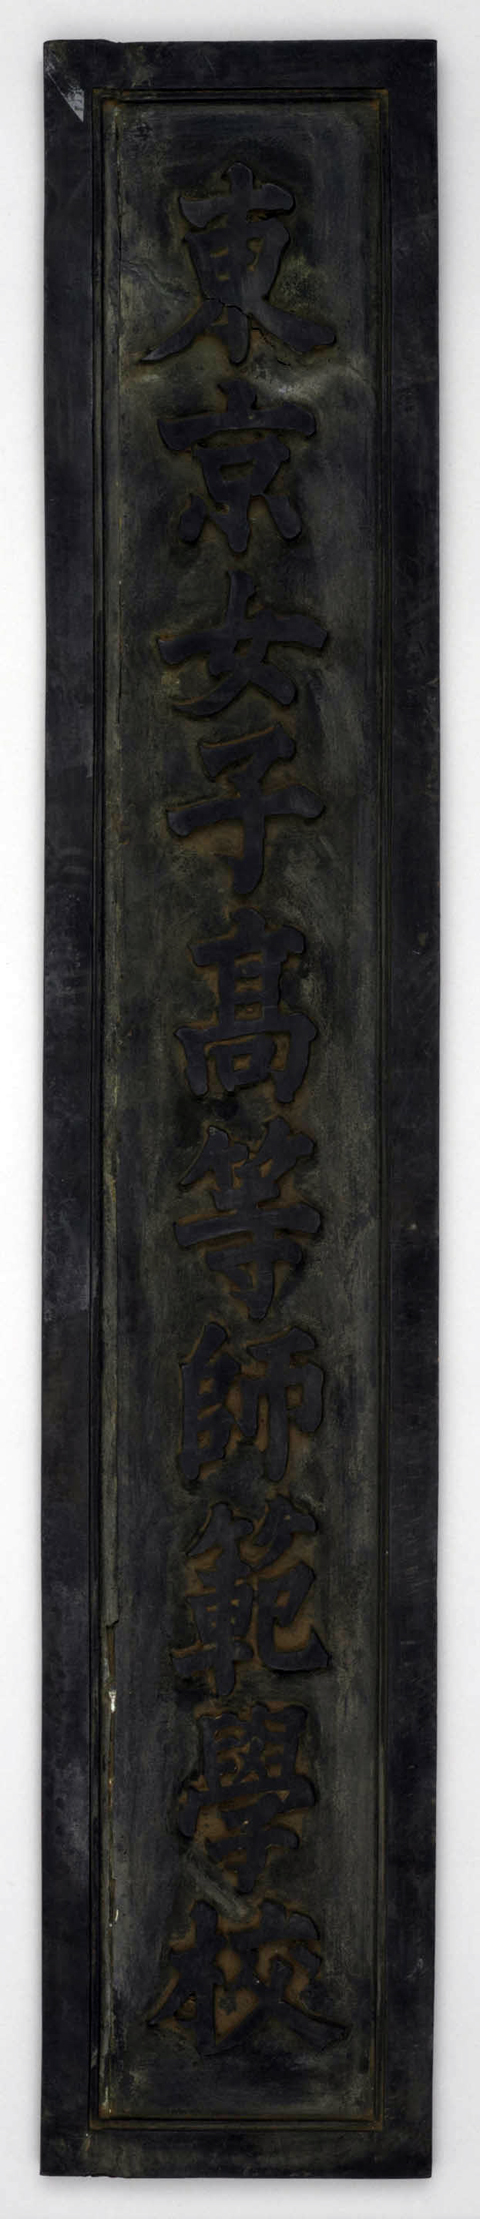 東京女子髙等師範學校